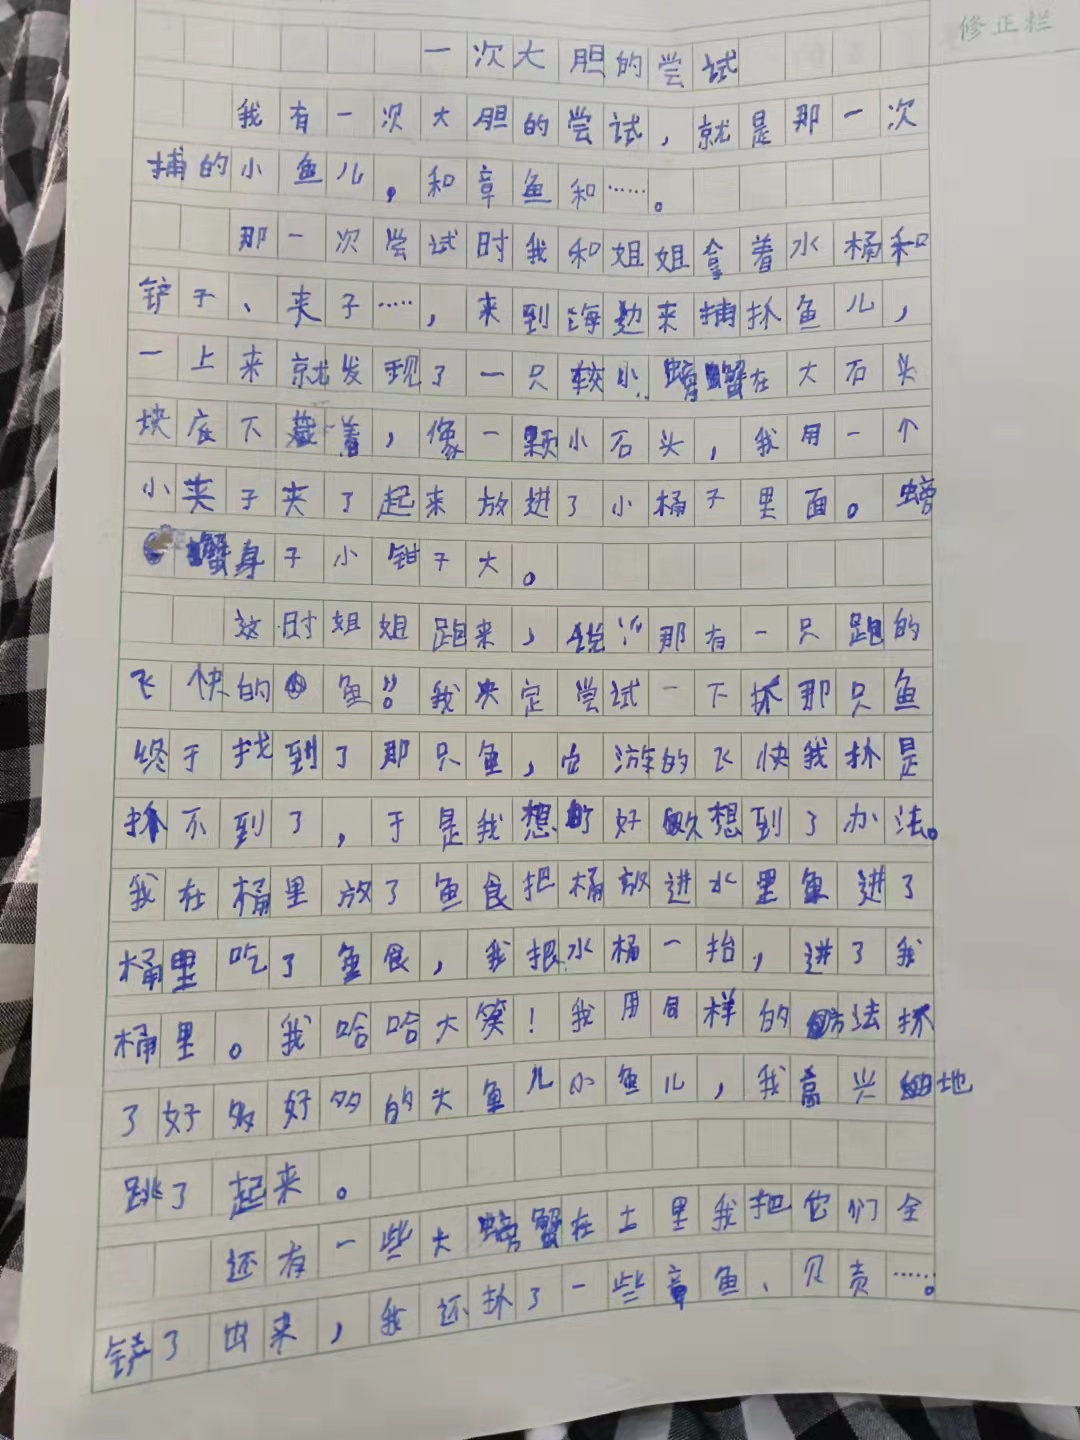 修正栏
一次大胆的尝试
我有一次大胆的尝试，就是那一次
捕的小鱼儿，和章鱼和……。
那一次尝试时我和姐姐拿着水桶和
铲子、夹子……，来到海边来捕抓鱼儿，
一上来就发现了一只较小螃蟹在大石头
块底下藏着，像一颗小石头，我用一个
小夹子夹了起来放进了小桶子里面。螃
蟹身子小钳子大。
这时姐姐跑来，说“那有一只跑的
飞快的鱼”。我决定尝试一下抓那只鱼
终于找到了那只鱼，它游的飞快我抓是
抓不到了，于是我想了好久想到了办法。
我在桶里放了鱼食把桶放进水里鱼进了
桶里吃了鱼食，我把水桶一抬，进了我
桶里。我哈哈大笑！我用同样的方法抓
了好多好多的大鱼儿小鱼儿，我高兴地
跳了起来。
还有一些大螃蟹在土里我把它们全
铲了出来，我还抓了一些章鱼、贝壳……。